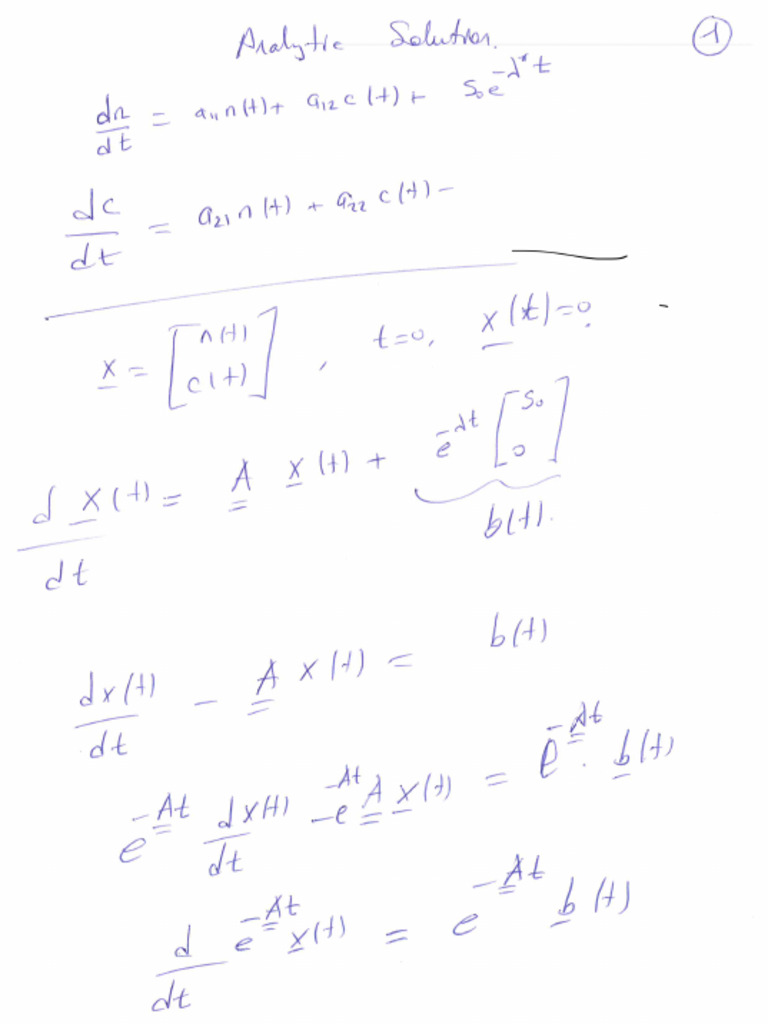 Analytic Solution. ①
dn/dt = a₁₁n(t) + a₁₂c(t) + S₀e^{-λ*t}
dc/dt = a₂₁n(t) + a₂₂c(t) -
x = [n(t) c(t)], t=0, x(t)=0.
d x(t)/dt = A x(t) + e^{-λt} [S₀ 0]
b(t).
dx(t)/dt - A x(t) = b(t)
e^{-At} dx(t)/dt - e^{-At} A x(t) = e^{-At} . b(t)
d/dt e^{-At} x(t) = e^{-At} b(t)